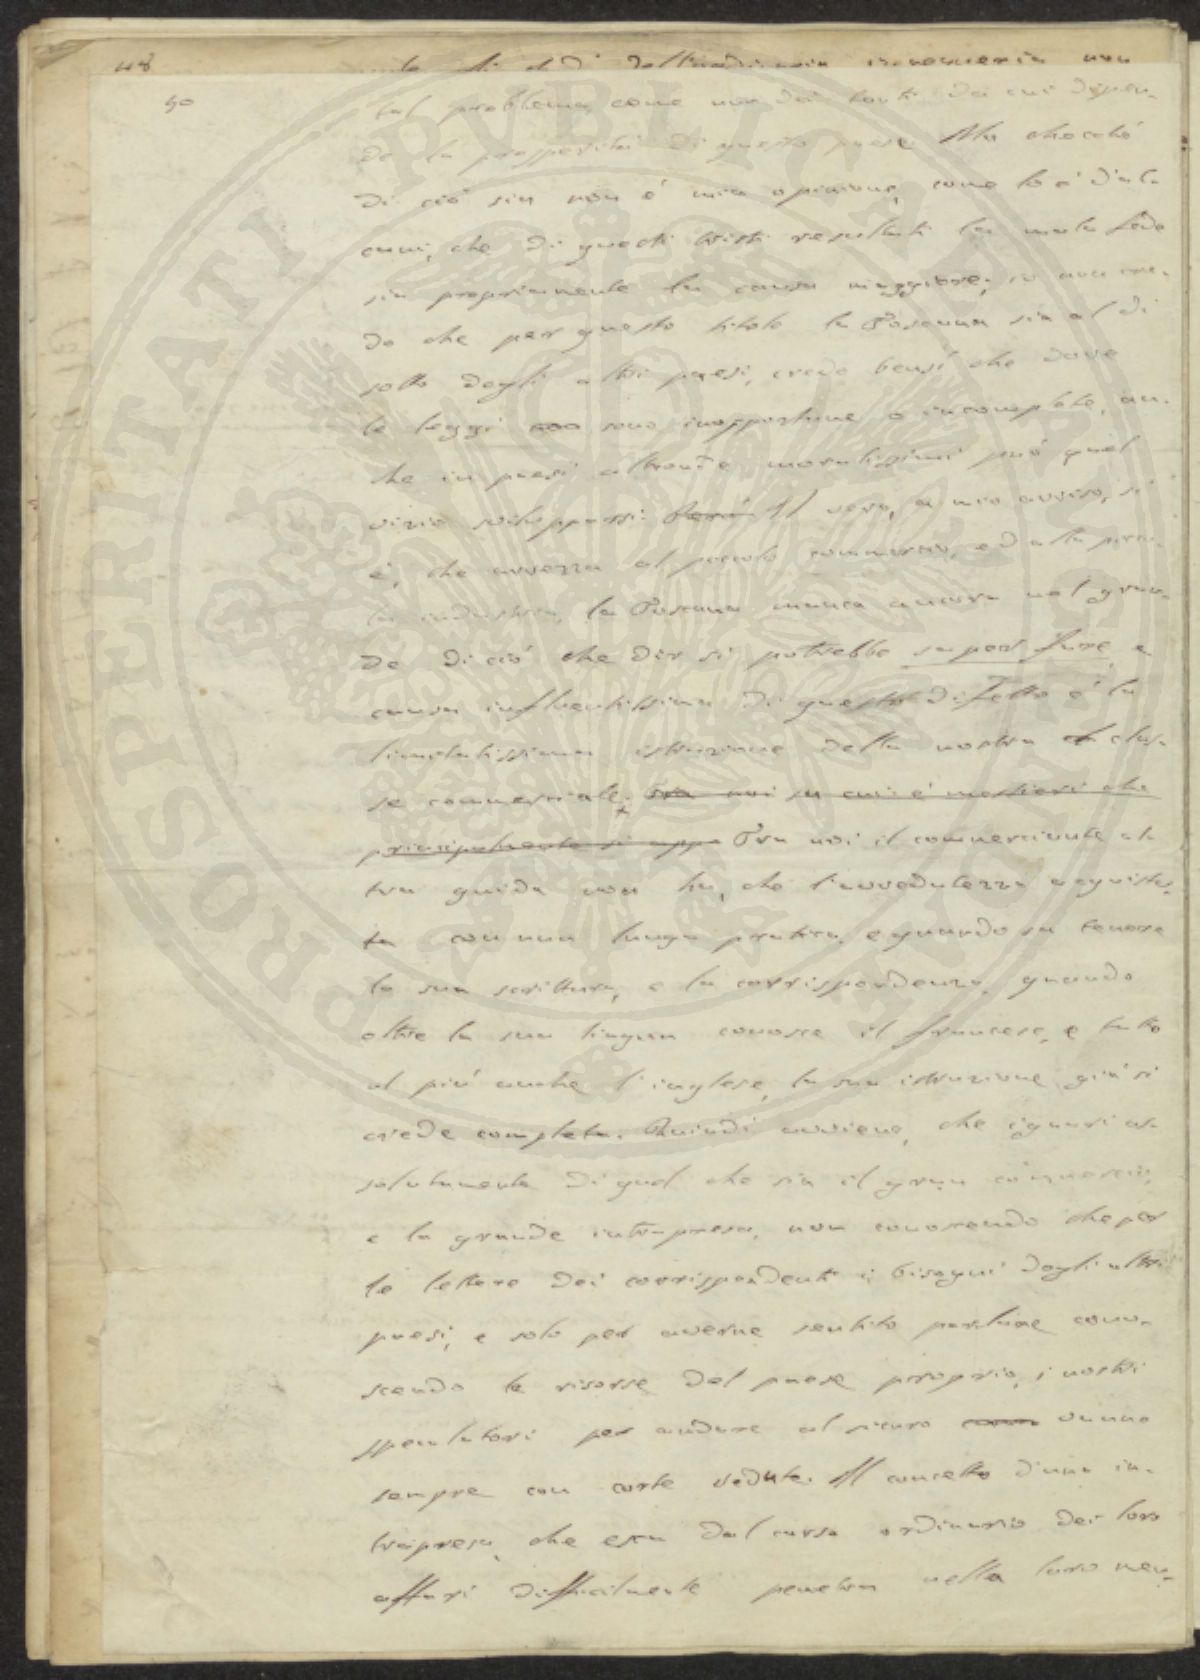 48
50
tal problema, come uno dei fonti da cui dipen-
de la prosperità di questo paese. Ma checchè
di ciò sia non è mia opinione, come lo è d'al-
cuni, che di questi tristi resultati la mala fede
sia propriamente la causa maggiore; io non cre-
do che per questo titolo la Toscana sia al di
sotto degli altri paesi, credo bensì che dove
le leggi sono inopportune o incomplete, an-
che in paesi altronde moralissimi può quel
vizio svilupparsi. Il vero, a mio avviso, si
è, che avvezza al piccolo commercio, ed alla picco-
la industria, la Toscana manca ancora nel gran-
de di ciò che dir si potrebbe saper fare, e
causa influentissima di questo difetto è la
limitatissima istruzione della nostra clas-
se commerciale. Tra noi su cui è mestieri che
principalmente si appo Tra noi il commerciante al-
tra guida non ha, che l'avvedutezza acquista-
ta con una lunga pratica, e quando sa tenere
la sua scrittura, e la corrispondenza, quando
oltre la sua lingua conosce il francese, e tutto
al più anche l'inglese, la sua istruzione già si
crede completa. Quindi avviene, che ignari as-
solutamente di quel che sia il gran commercio,
e la grande intrapresa, non conoscendo che per
le lettere dei corrispondenti i bisogni degli altri
paesi, e solo per averne sentito parlare cono-
scendo le risorse del paese proprio, i nostri
speculatori per andare al sicuro vanno
sempre con corte vedute. Il concetto d'una in-
trapresa, che esca dal corso ordinario dei loro
affari difficilmente penetra nella loro men-
PROSPERITATI PUBLICAE